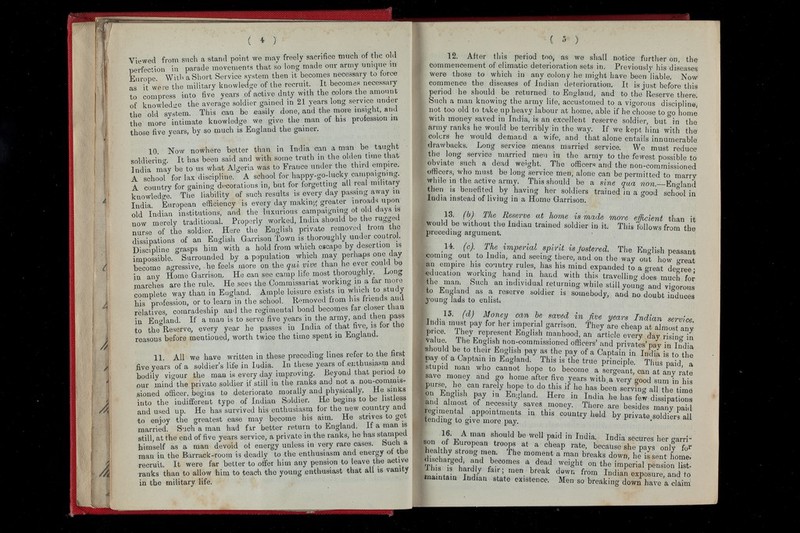 ( 4 )
Viewed from such a stand point we may freely sacrifice much of the old
perfection in parade movements that so long made our army unique in
Europe. With a Short Service system then it becomes necessary to force
as it were the military knowledge of the recruit. It becomes necessary
to compress into five years of active duty with the colors the amount
of knowledge the average soldier gained in 21 years long service under
the old system. This can be easily done, and the more insight, and
the more intimate knowledge we give the man of his profession in
those five years, by so much is England the gainer.
10. Now nowhere better than in India can a man be taught
soldiering. It has been said and with some truth in the olden time that
India may be to us what Algeria was to France under the third empire.
A school for lax discipline. A school for happy-go-lucky campaigning.
A country for gaining decorations in, but for forgetting all real military
knowledge. The liability of such results is every day passing away in
India. European efficiency is every day making greater inroads upon
old Indian institutions, and the luxurious campaigning of old days is
now merely traditional. Properly worked, India should be the rugged
nurse of the soldier. Here the English private removed from the
dissipations of an English Garrison Town is thoroughly under control.
Discipline grasps him with a hold from which escape by desertion is
impossible. Surrounded by a population which may perhaps one day
become agressive, he feels more on the qui vive than he ever could be
in any Home Garrison. He can see camp life most thoroughly. Long
marches are the rule. He sees the Commissariat working in a far more
complete way than in England. Ample leisure exists in which to study
his profession, or to learn in the school. Removed from his friends and
relatives, comradeship and the regimental bond becomes far closer than
in England. If a man is to serve five years in the army, and then pass
to the Reserve, every year he passes in India of that five, is for the
reasons before mentioned, worth twice the time spent in England.
11. All we have written in these preceding lines refer to the first
five years of a soldier's life in India. In these years of enthusiasm and
bodily vigour the man is every day improving. Beyond that period to
our mind the private soldier if still in the ranks and not a non-commis-
sioned officer, begins to deteriorate morally and physically. He sinks
into the indifferent type of Indian Soldier. He begins to be listless
and used up. He has survived his enthusiasm for the new country and
to enjoy the greatest ease may become his aim. He strives to get
married. Such a man had far better return to England. If a man is
still, at the end of five years service, a private in the ranks, he has stamped
himself as a man devoid of energy unless in very rare cases. Such a
man in the Barrack-room is deadly to the enthusiasm and energy of the
recruit. It were far better to offer him any pension to leave the active
ranks than to allow him to teach the young enthusiast that all is vanity
in the military life.
( 5 )
12. After this period too, as we shall notice further on, the
commencement of climatic deterioration sets in. Previously his diseases
were those to which in any colony he might have been liable. Now
commence the diseases of Indian deterioration. It is just before this
period he should be returned to England, and to the Reserve there.
Such a man knowing the army life, accustomed to a vigorous discipline,
not too old to take up heavy labour at home, able if he choose to go home
with money saved in India, is an excellent reserve soldier, but in the
army ranks he would be terribly in the way. If we kept him with the
colors he would demand a wife, and that alone entails innumerable
drawbacks. Long service means married service. We must reduce
the long service married men in the army to the fewest possible to
obviate such a dead weight. The officers and the non-commissioned
officers, who must be long service men, alone can be permitted to marry
while in the active army. This should be a sine qua non.—England
then is benefited by having her soldiers trained in a good school in
India instead of living in a Home Garrison.
13. (b) The Reserve at home is made more efficient than it
would be without the Indian trained soldier in it. This follows from the
preceding argument.
14. (c). The imperial spirit is fostered. The English peasant
coming out to India, and seeing there, and on the way out how great
an empire his country rules, has his mind expanded to a great degree;
education working hand in hand with this travelling does much for
the man. Such an individual returning while still young and vigorous
to England as a reserve soldier is somebody, and no doubt induces
young lads to enlist.
15. (d) Money can be saved in five years Indian service.
India must pay for her imperial garrison. They are cheap at almost any
price. They represent English manhood, an article every day rising in
value. The English non-commissioned officers' and privates' pay in India
should be to their English pay as the pay of a Captain in India is to the
pay of a Captain in England. This is the true principle. Thus paid, a
stupid man who cannot hope to become a sergeant, can at any rate
save money and go home after five years with a very good sum in his
purse, he can rarely hope to do this if he has been serving all the time
on English pay in England. Here in India he has few dissipations
and almost of necessity saves money. There are besides many paid
regimental appointments in this country held by private soldiers all
tending to give more pay.
16. A man should be well paid in India. India secures her garri-
son of European troops at a cheap rate, because she pays only for
healthy strong men. The moment a man breaks down, he is sent home,
discharged, and becomes a dead weight on the imperial pension list.
This is hardly fair; men break down from Indian exposure, and to
maintain Indian state existence. Men so breaking down have a claim